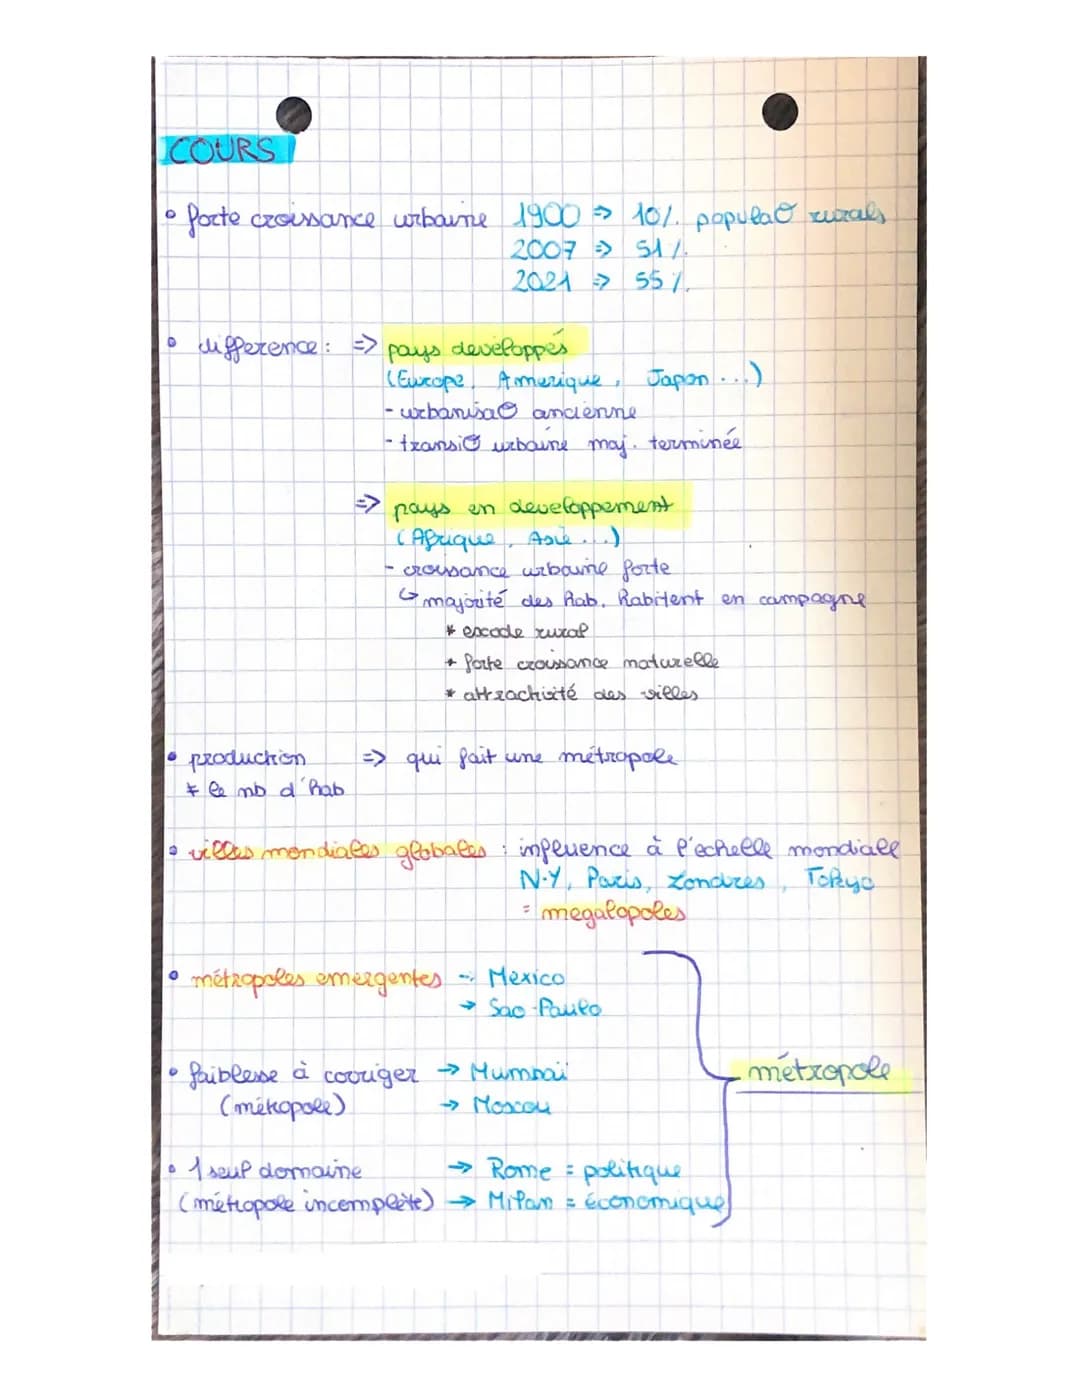 COURS
• forte croissance urbaine 1900 => 10%. populaO rurals
2007 => 51%.
2021 => 55%.
• difference : => pays développés
(Europe, Amerique, Japon ...)
- urbanisaO ancienne
- transiO urbaine maj. terminée
=> pays en developpement
(Afrique, Asie ...)
- croissance urbaine forte
↳ majorité des hab. habitent en campagne
* exode rural
* forte croissance naturelle
* attractivité des villes
• production => qui fait une métropole
≠ le nb d'hab
• villes mondiales globales : influence à l'echelle mondiale
N.Y, Paris, Londres, Tokyo
= megalopoles
• métropoles emergentes → Mexico
→ Sao-Paulo
• faiblesse à corriger → Mumbaï
(métropole) → Moscou
métropole
• 1 seul domaine → Rome = politique
(métropole incomplète) → Milan = économique